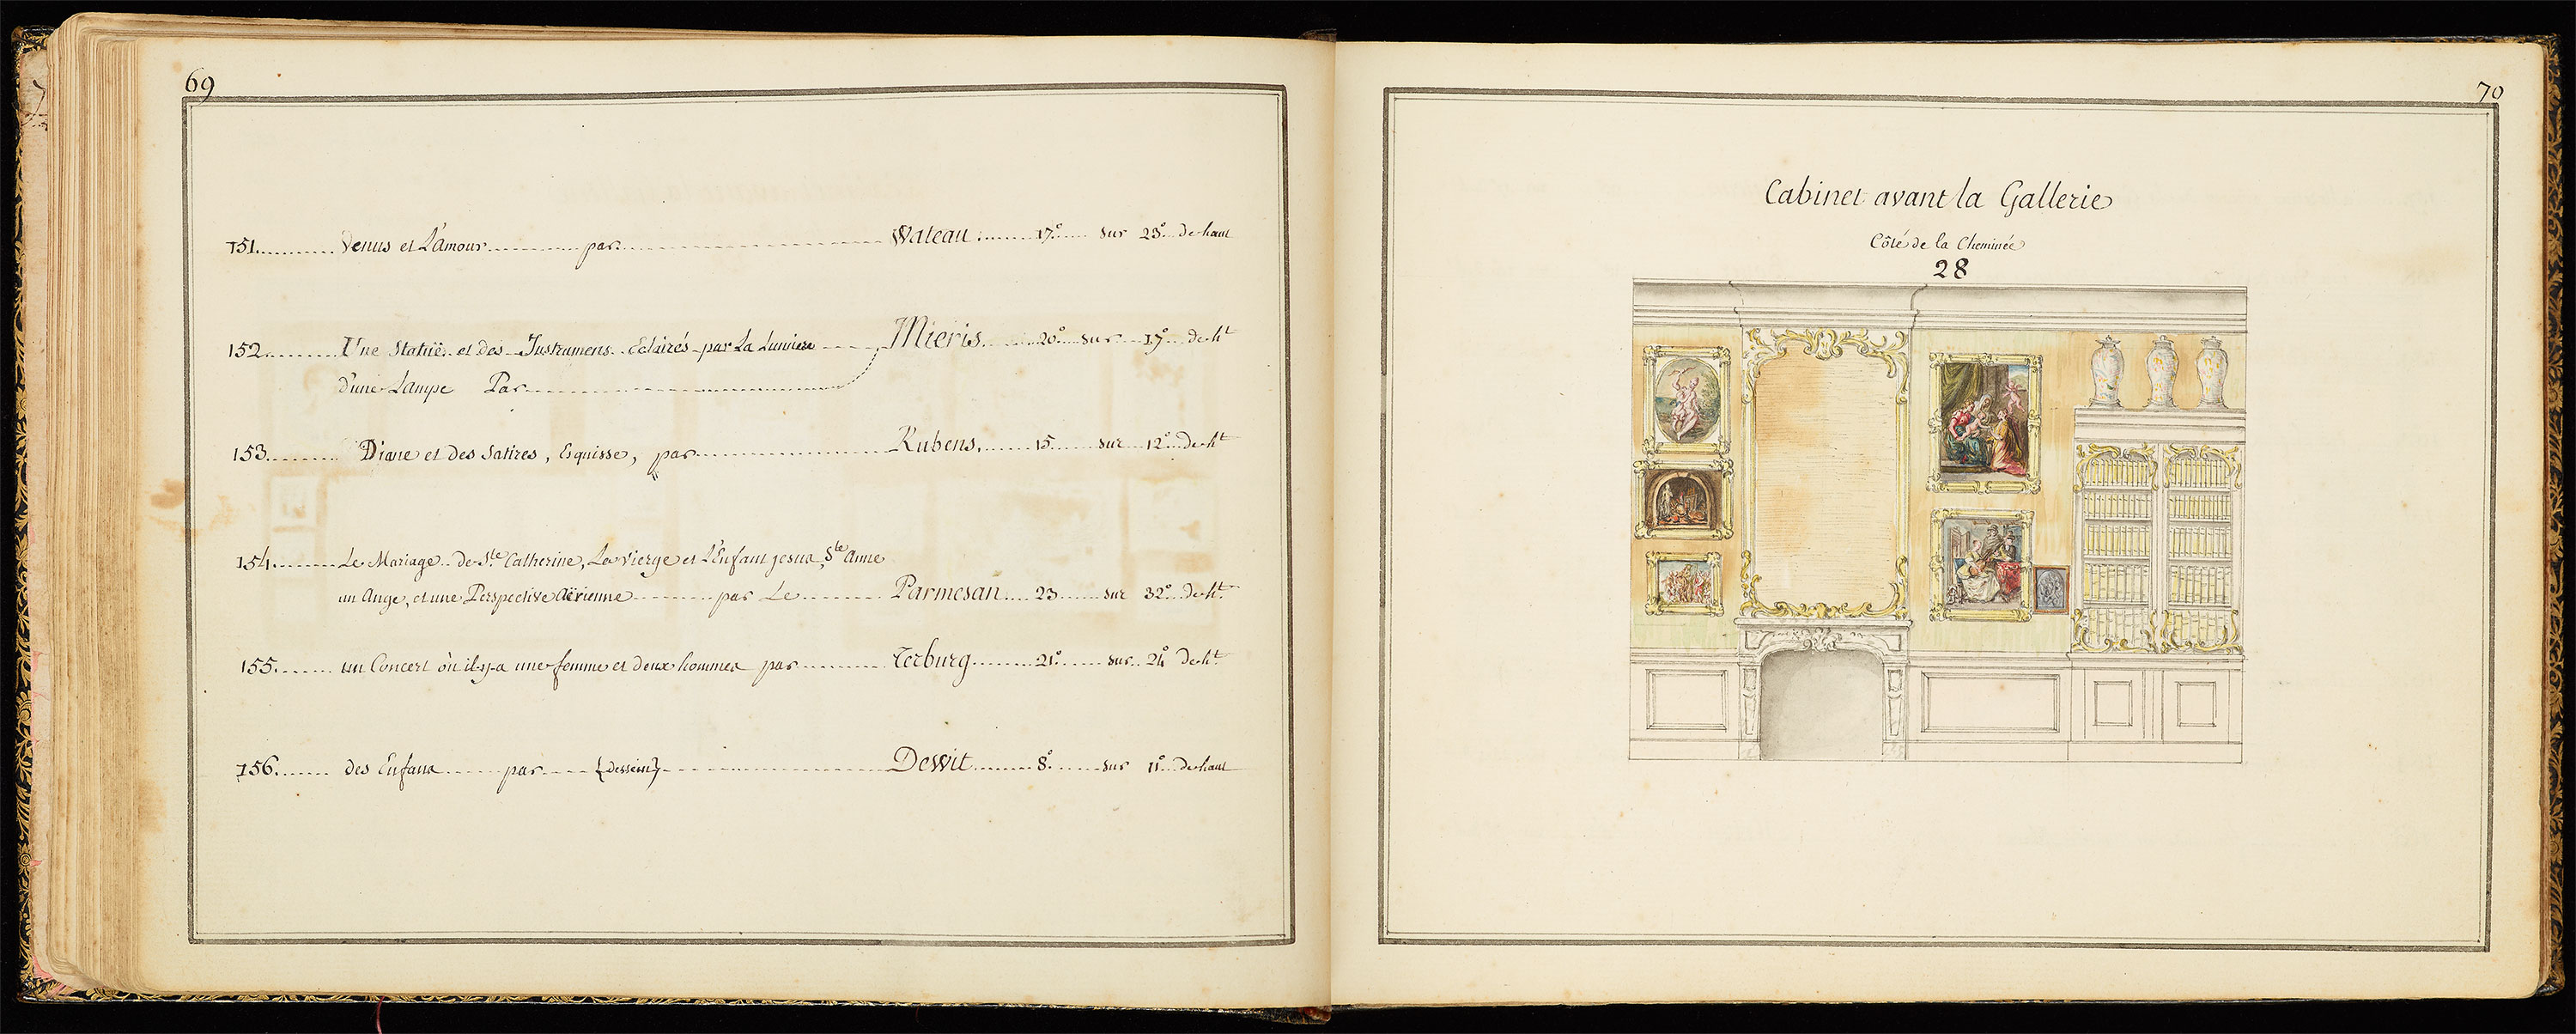 69
151 Venus et L'amour par Wateau 17° sur 23° de haut
152 Une Statuë et des Instrumens Eclairés par La Lumiere Mieris 20° sur 17° de ht
d'une Lampe Par
153 Diane et des Satires, Esquisse, par Rubens, 15 sur 12° de ht
154 Le Mariage de Ste Catherine, La Vierge et L'Enfant jesus, Ste Anne
un Ange, et une Perspective Aërienne par Le Parmesan 23 sur 32° de ht
155 un Concert où il y a une femme et deux hommes par Terburg 21° sur 24° de ht
156 des Enfans par {dessein} Dewit 8° sur 11° de haut
70
Cabinet avant la Gallerie
Côté de la Cheminée
28